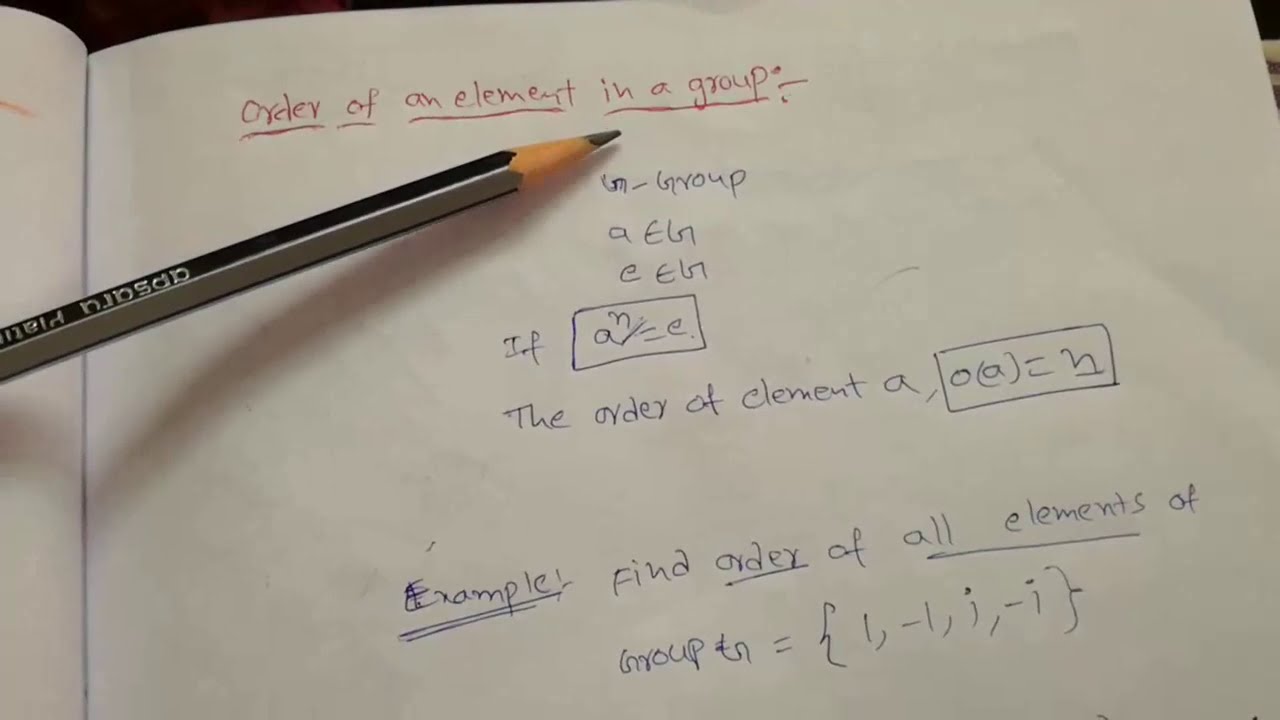 Order of an element in a group:-
G-Group
a ∈ G
e ∈ G
If aⁿ = e.
The order of element a, o(a) = n
Example:- Find order of all elements of
Group G = {1, -1, i, -i}
apsara Plati